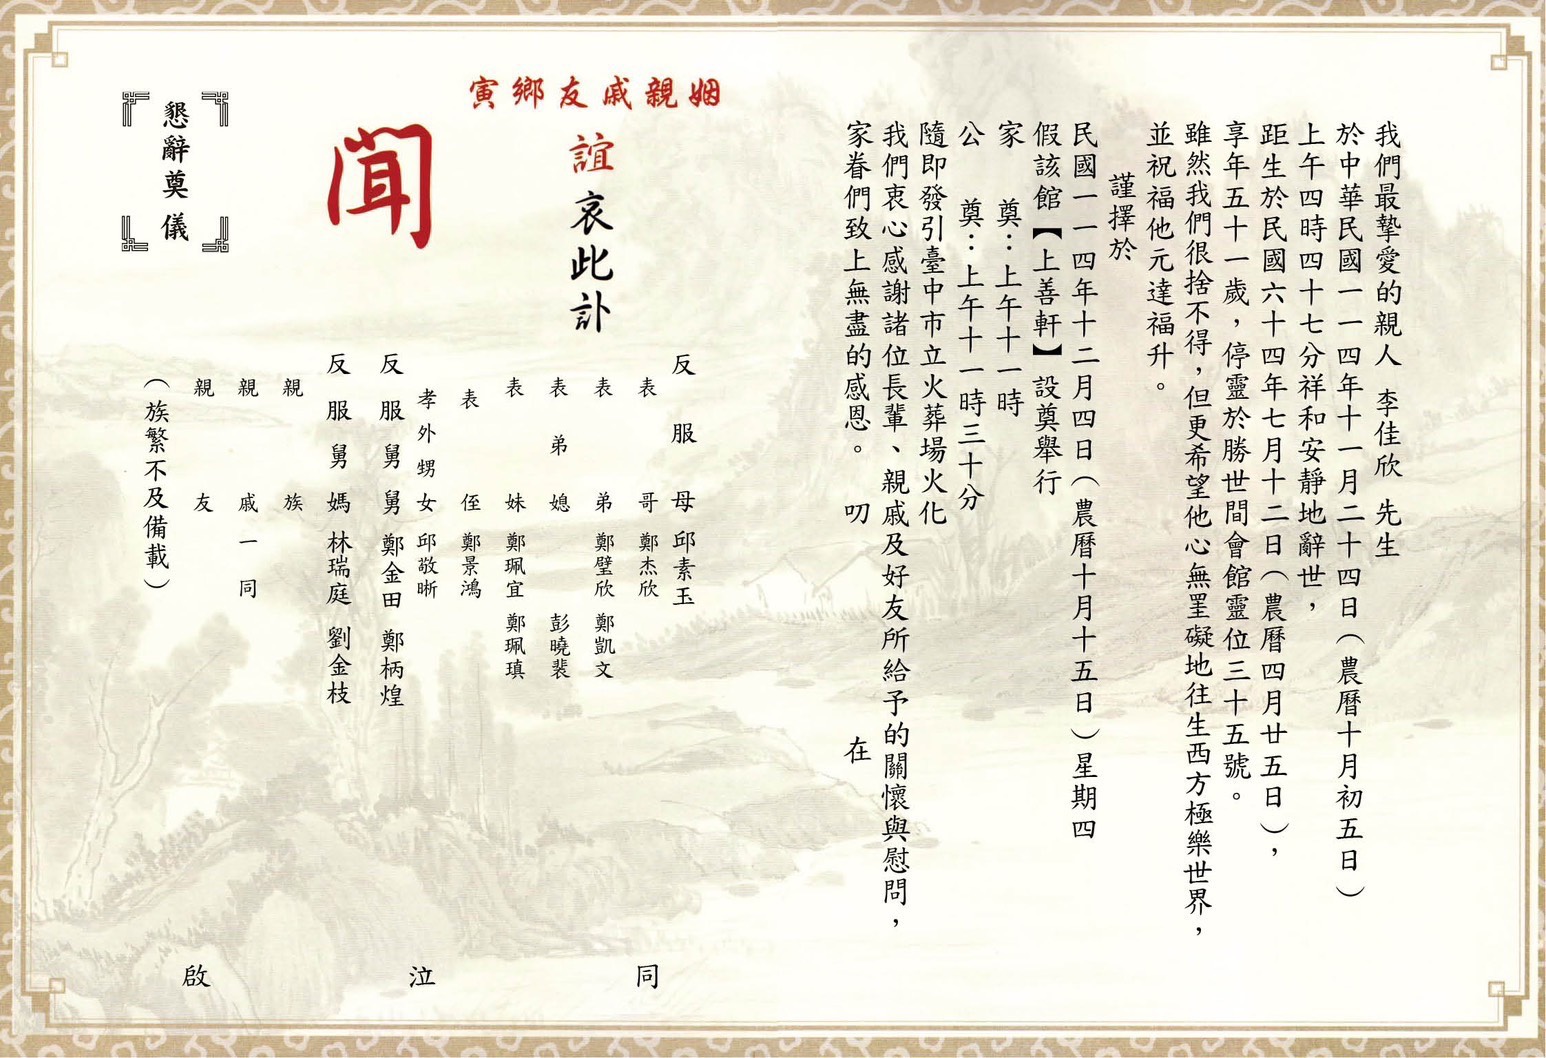 我們最摯愛的親人 李佳欣 先生
於中華民國一一四年十一月二十四日（農曆十月初五日）
上午四時四十七分祥和安靜地辭世，
距生於民國六十四年七月十二日（農曆四月廿五日），
享年五十一歲，停靈於勝世間會館靈位三十五號。
雖然我們很捨不得，但更希望他心無罣礙地往生西方極樂世界，
並祝福他元達福升。
謹擇於
民國一一四年十二月四日（農曆十月十五日）星期四
假該館【上善軒】設奠舉行
家 奠：上午十一時
公 奠：上午十一時三十分
隨即發引臺中市立火葬場火化
我們衷心感謝諸位長輩、親戚及好友所給予的關懷與慰問，
家眷們致上無盡的感恩。 叨 在
姻親戚友鄉寅
誼哀此訃
聞
反服母 邱素玉
表哥 鄭杰欣
表弟 鄭璧欣 鄭凱文
表弟媳 彭曉裴
表妹 鄭珮宜 鄭珮瑱
表侄 鄭景鴻
孝外甥女 邱敬晰
反服舅舅 鄭金田 鄭柄煌
反服舅媽 林瑞庭 劉金枝
親族
親戚一同
親友
（族繁不及備載）
同 泣 啟
懇辭奠儀